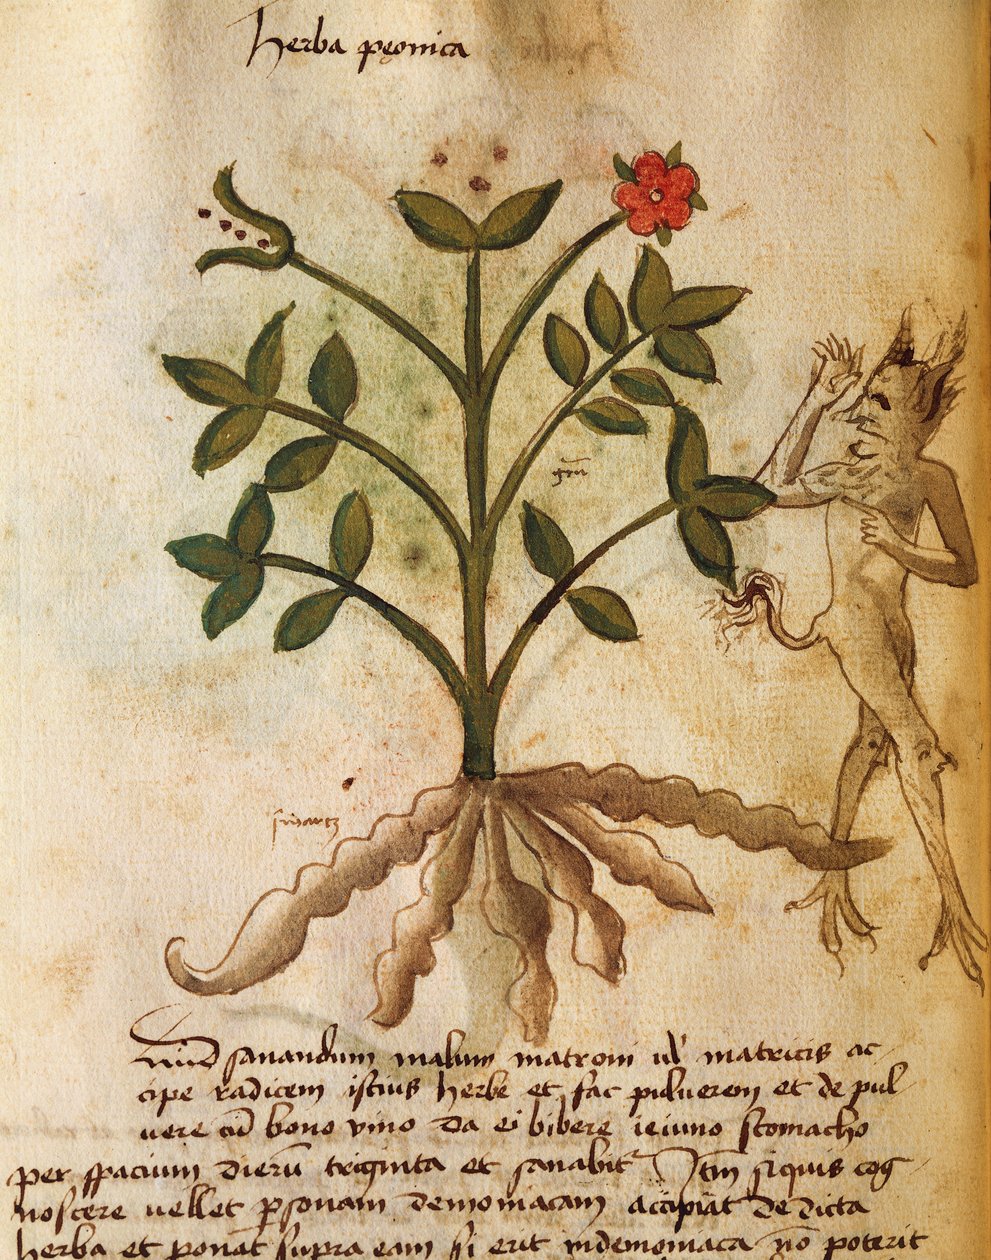 herba peonica
sanandum malum matroni ul' matricis ac
cipe radicem istius herbe et fac pulverem et de pul
vere cū bono vino da ei bibere ieiuno stomacho
per spacium dierū triginta et sanabit Itm siquis cog
noscere vellet psonam demoniacam accipiat de dicta
herba et ponat supra eam si erit indemoniaca nō poterit